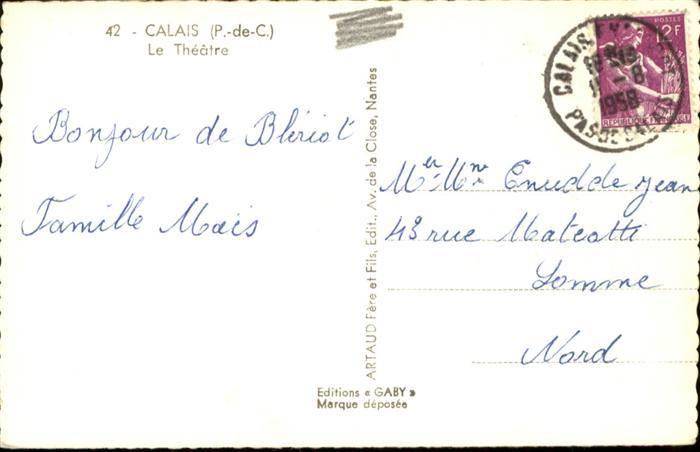 42 - CALAIS (P.-de-C.)
Le Théâtre
Bonjour de Blériot
Famille Maës
ARTAUD Fère et Fils, Edit., Av. de la Close, Nantes
Editions « GABY »
Marque déposée
POSTES
12F
REPUBLIQUE FRANÇAISE
CALAIS
11 - 8
1958
PAS DE CALAIS
Mr Mme Enudde Jean
43 rue Mateotti
Somme
Nord